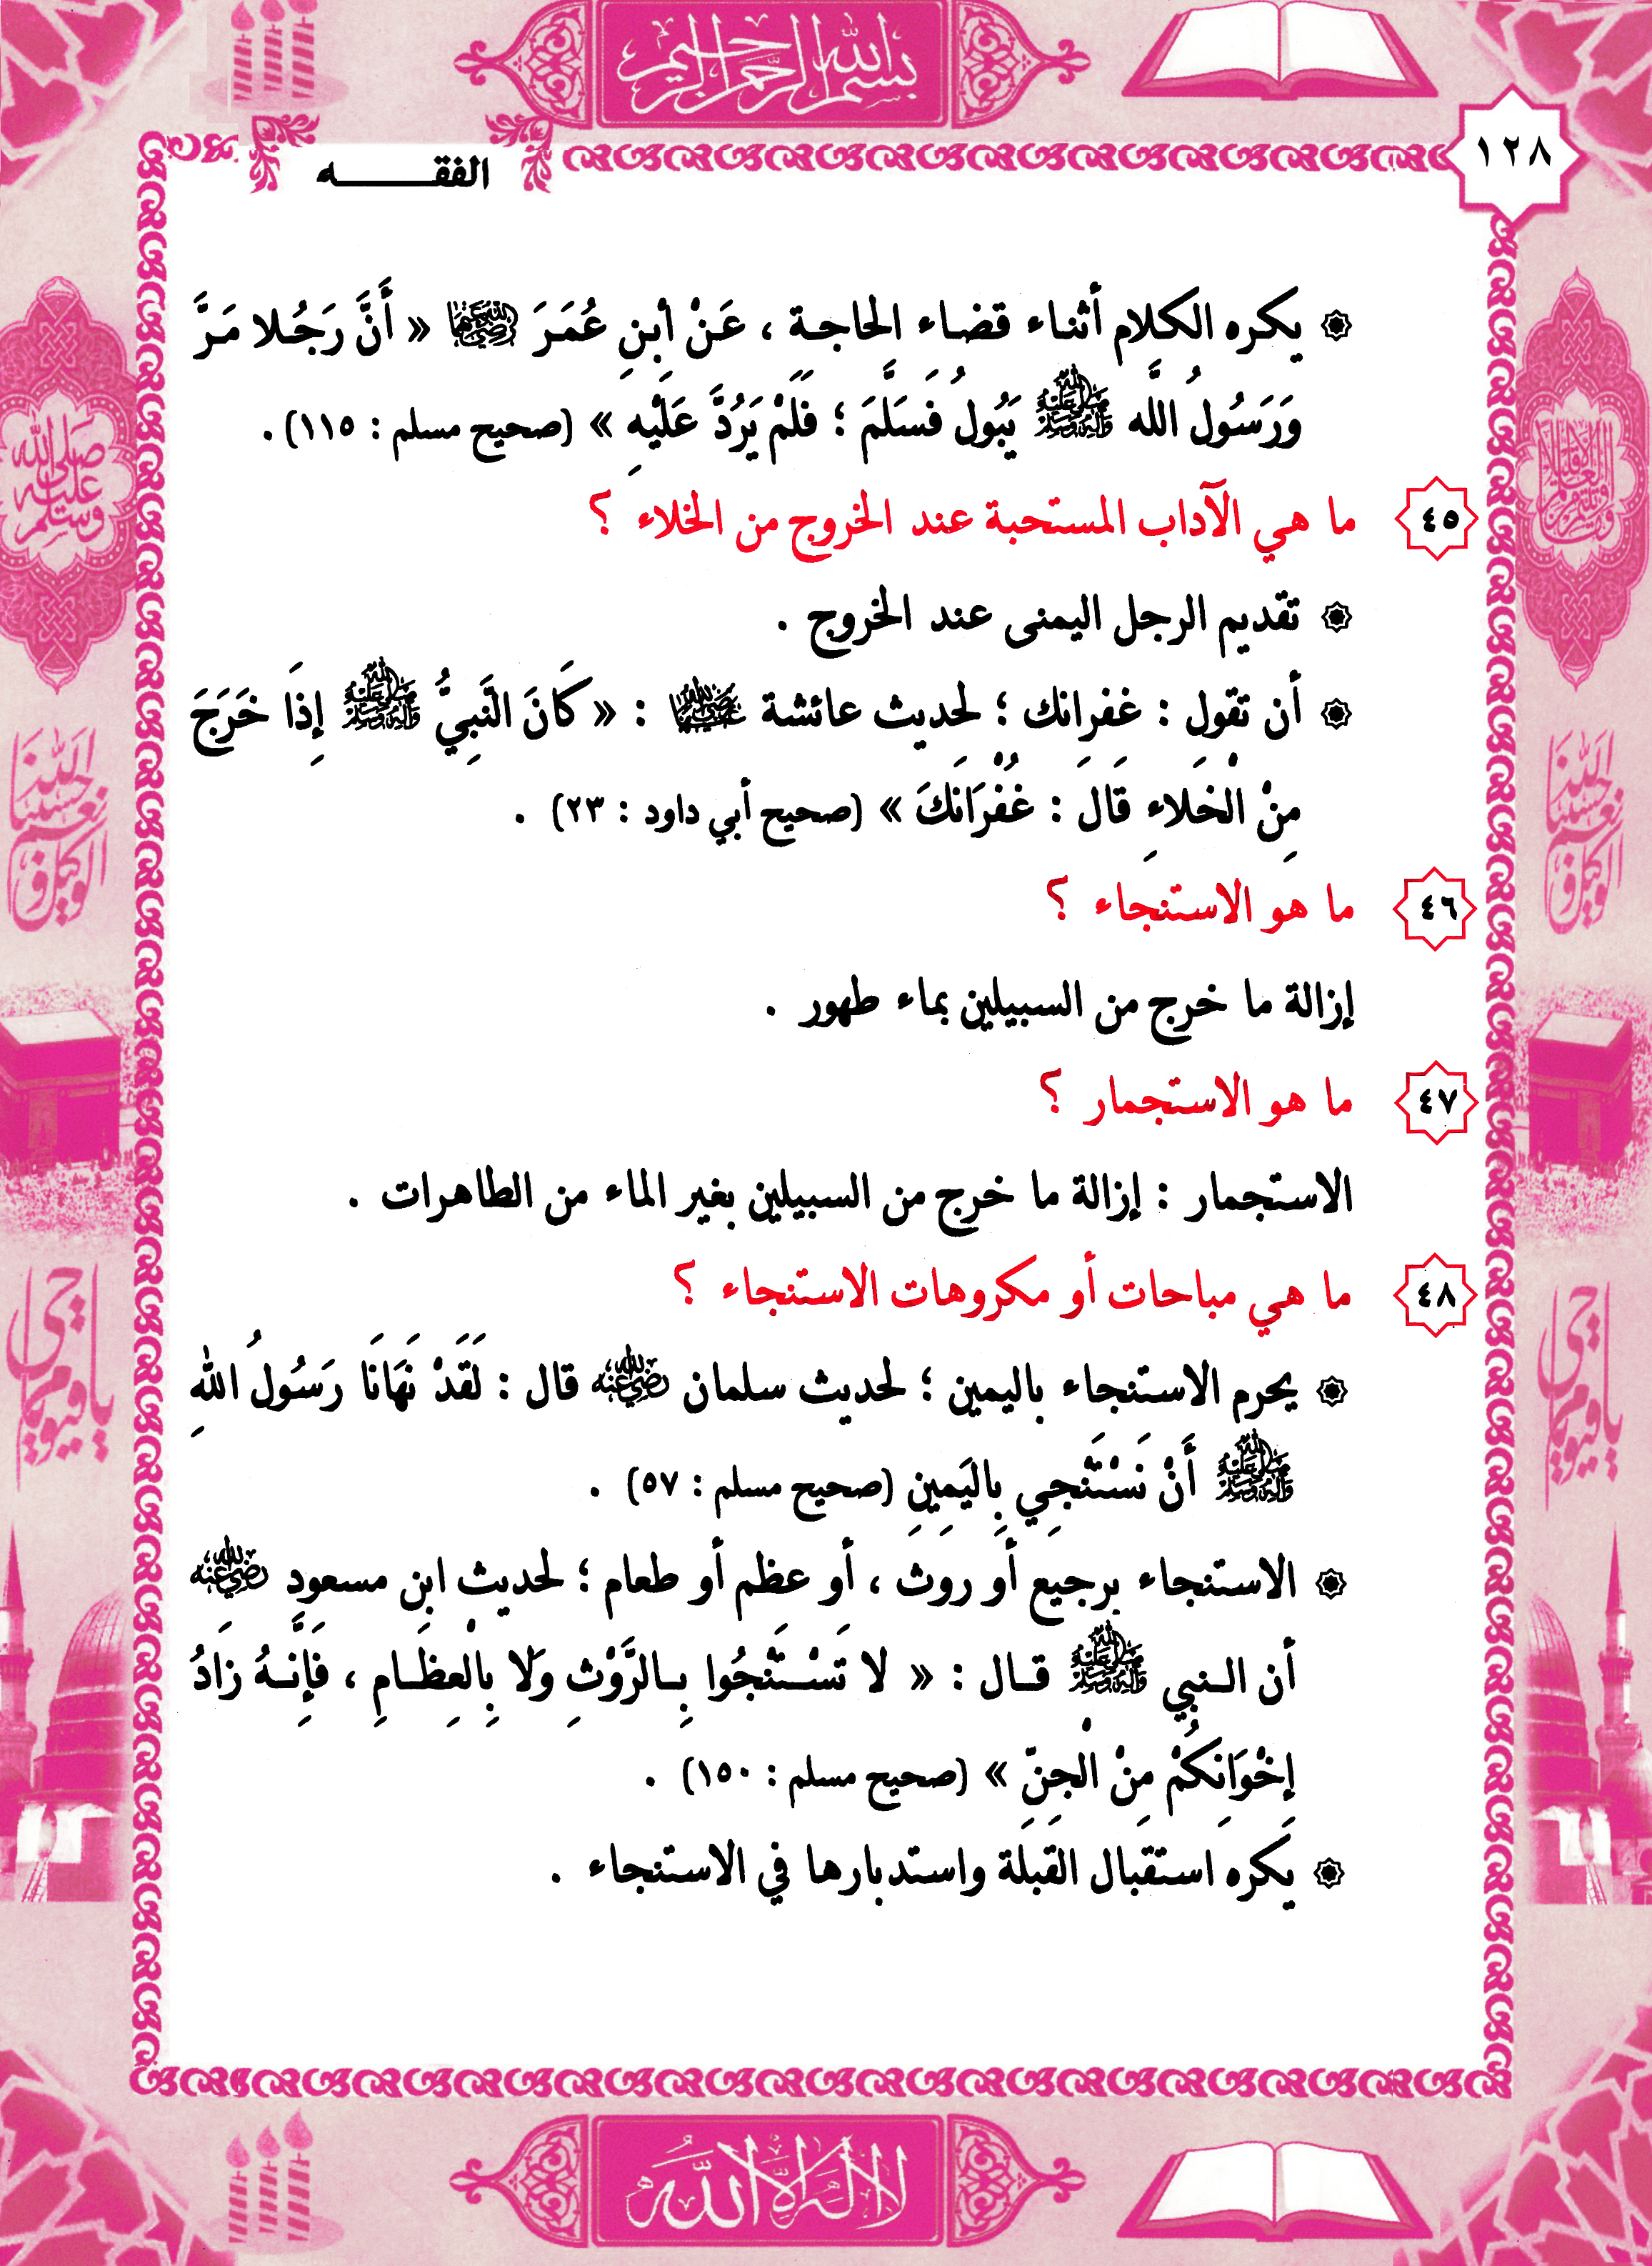 بسم الله الرحمن الرحيم
١٢٨
الفقـــــــه
يكره الكلام أثناء قضاء الحاجة ، عَنْ ابنِ عُمَرَ رضي الله عنهما « أَنَّ رَجُلا مَرَّ
وَرَسُولُ اللَّه ﷺ يَبُولُ فَسَلَّمَ ؛ فَلَمْ يَرُدَّ عَلَيْهِ » (صحيح مسلم : ١١٥) .
٤٥ ما هي الآداب المستحبة عند الخروج من الخلاء ؟
تقديم الرجل اليمنى عند الخروج .
أن تقول : غفرانك ؛ لحديث عائشة رضي الله عنها : « كَانَ النَّبِيُّ ﷺ إِذَا خَرَجَ
مِنْ الْخَلَاءِ قَالَ : غُفْرَانَكَ » (صحيح أبي داود : ٢٣) .
٤٦ ما هو الاستنجاء ؟
إزالة ما خرج من السبيلين بماء طهور .
٤٧ ما هو الاستجمار ؟
الاستجمار : إزالة ما خرج من السبيلين بغير الماء من الطاهرات .
٤٨ ما هي مباحات أو مكروهات الاستنجاء ؟
يحرم الاستنجاء باليمين ؛ لحديث سلمان رضي الله عنه قال : لَقَدْ نَهَانَا رَسُولُ اللهِ
ﷺ أَنْ نَسْتَنْجِي بِاليَمِينِ (صحيح مسلم : ٥٧) .
الاستنجاء برجيع أو روث ، أو عظم أو طعام ؛ لحديث ابن مسعود رضي الله عنه
أن النبي ﷺ قال : « لا تَسْتَنْجُوا بِالرَّوْثِ وَلا بِالْعِظَامِ ، فَإِنَّهُ زَادُ
إِخْوَانِكُمْ مِنْ الْجِنِّ » (صحيح مسلم : ١٥٠) .
يكره استقبال القبلة واستدبارها في الاستنجاء .
صلى الله عليه وسلم
حسبنا الله ونعم الوكيل
يا حي يا قيوم
حسبنا الله ونعم الوكيل
يا حي يا قيوم
لا إله إلا الله